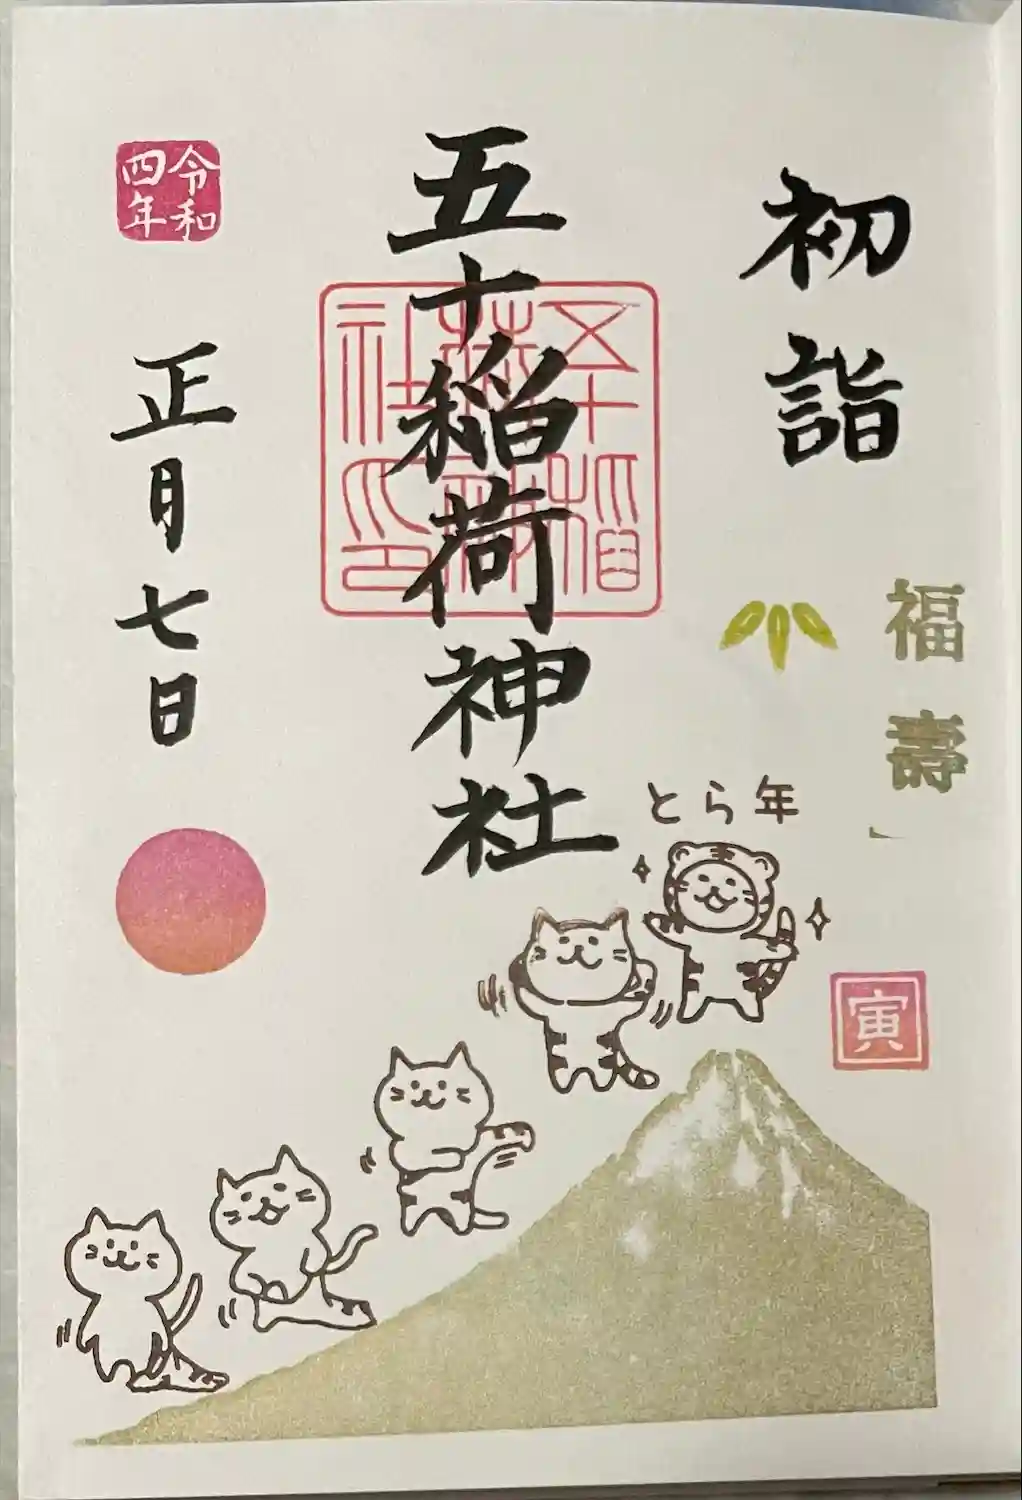 初詣
福壽
五十稲荷神社
五十稲
荷神
社印
令和
四年
正月七日
とら年
寅